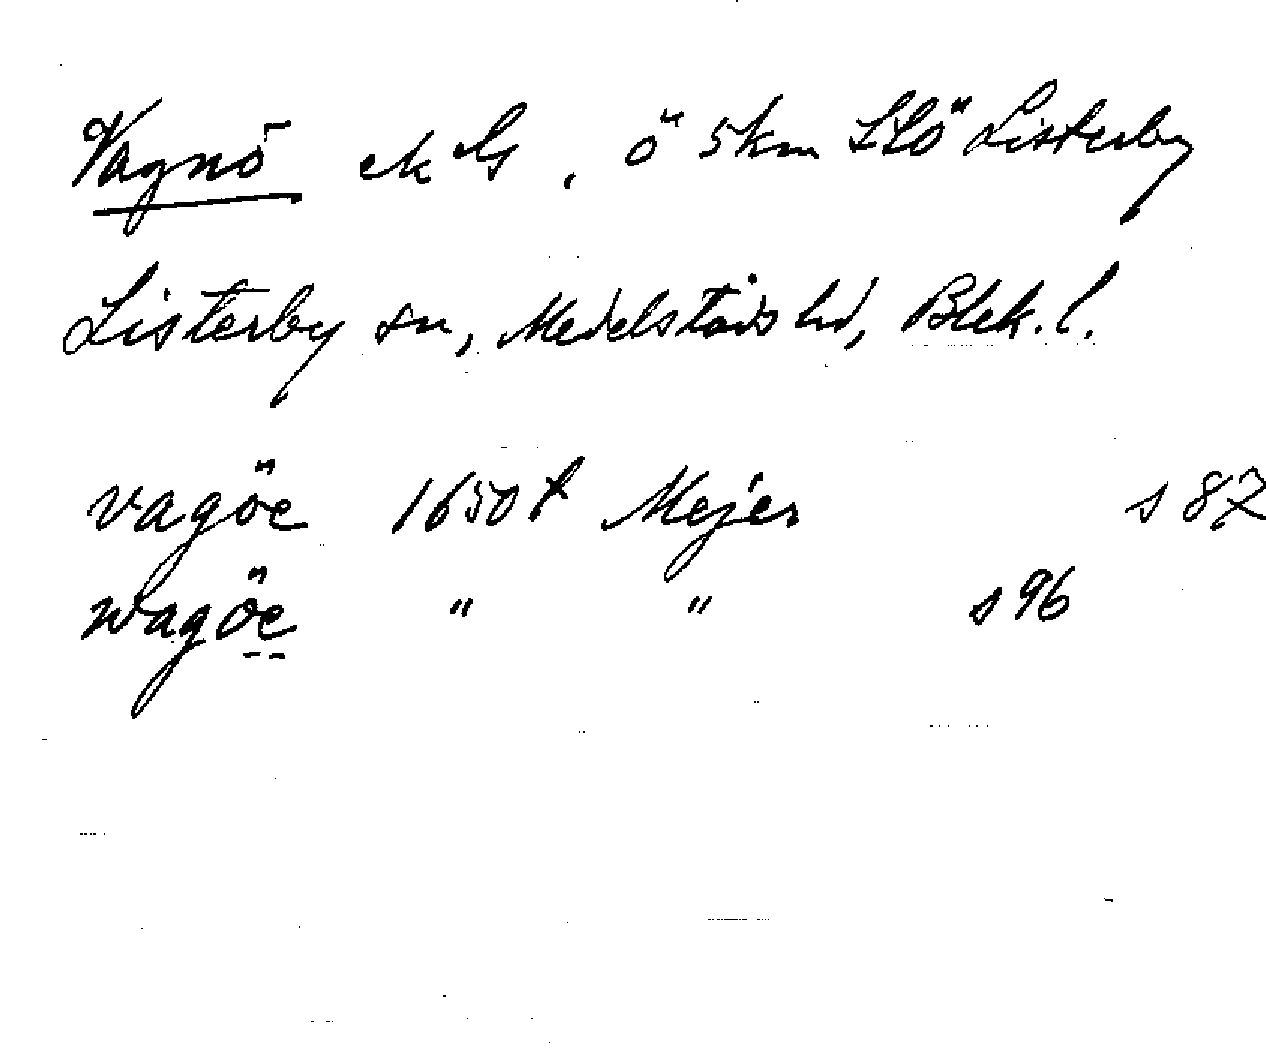 Vagnö ek G, ö 5km SSÖ Listerby
Listerby sn, Medelstads hd, Blek. l.
vagöe 1650t Mejer s 87
wagöe " " s 96